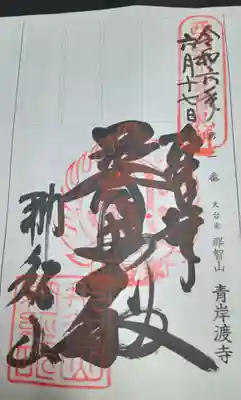 令和六年
六月十七日
第一番
天台宗 那智山 青岸渡寺
奉拝
普照殿
那智山